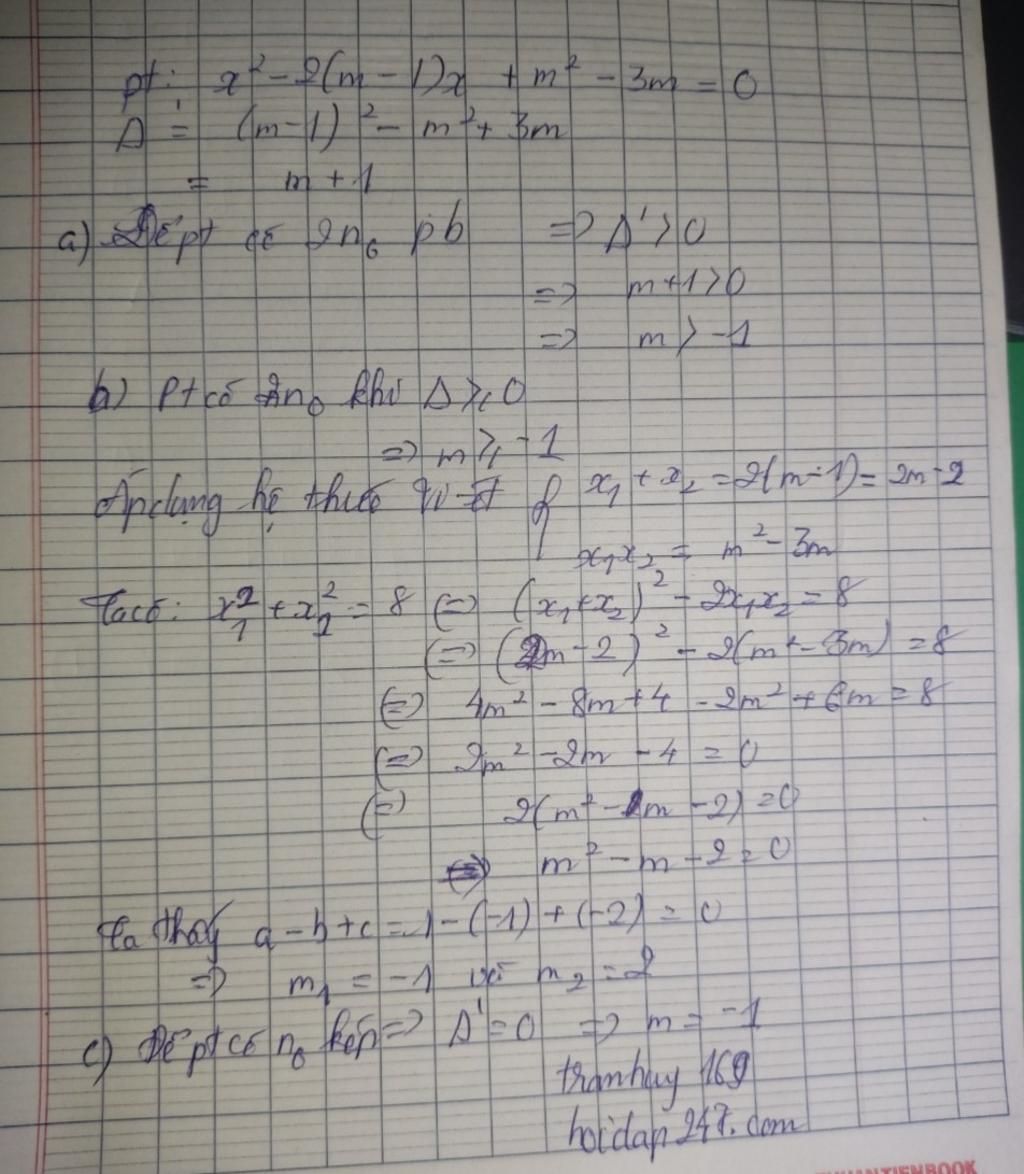 pt: x² - 2(m - 1)x + m² - 3m = 0
Δ' = (m-1)² - m² + 3m
= m + 1
a) Để pt có 2 n₀ pb => Δ' > 0
=> m+1 > 0
=> m > -1
b) Pt có 2n₀ khi Δ ≥ 0
=> m ≥ -1
Áp dụng hệ thức Vi-ét { x₁ + x₂ = 2(m-1) = 2m-2
x₁x₂ = m² - 3m
Ta có: x₁² + x₂² = 8 (=) (x₁+x₂)² - 2x₁x₂ = 8
(=) (2m - 2)² - 2(m² - 3m) = 8
(=) 4m² - 8m + 4 - 2m² + 6m = 8
(=) 2m² - 2m - 4 = 0
(=) 2(m² - 1m - 2) = 0
(=) m² - m - 2 = 0
Ta thấy a - b + c = 1 - (-1) + (-2) = 0
=> m₁ = -1 và m₂ = 2
c) Để pt có n₀ kép => Δ' = 0 => m = -1
tranhuy 169
hoidap247.com
TIENBOOK